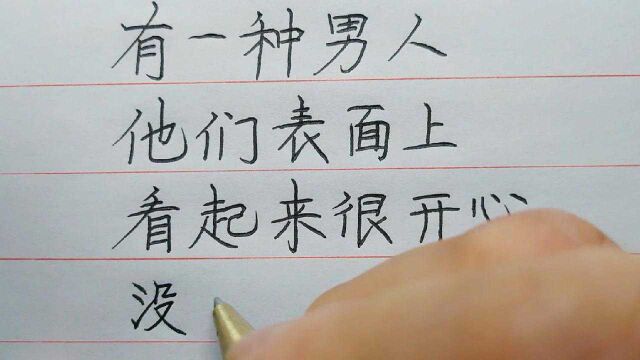 有一种男人
他们表面上
看起来很开心
没